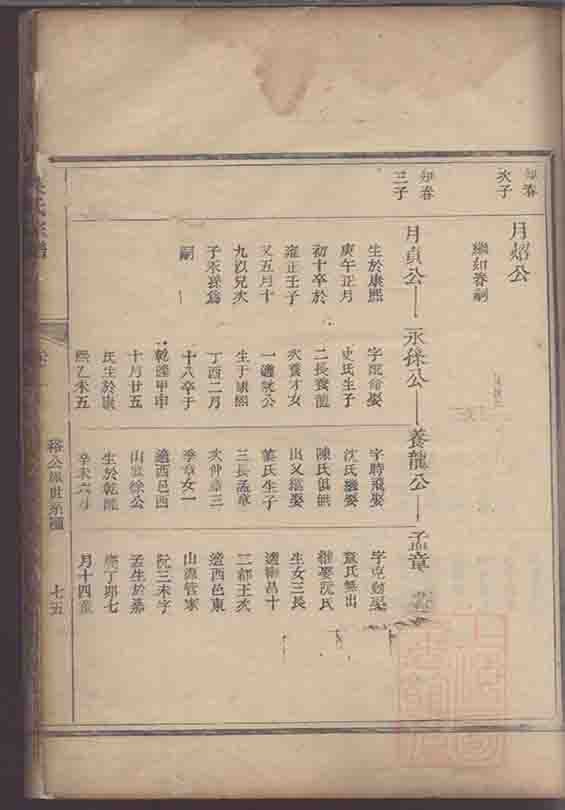 知春
次子
月焰公
繼知春嗣
知春
三子
月貞公
生於康熙
庚午正月
初十卒於
雍正壬子
又五月十
九以兄次
子永孫爲
嗣
永孫公
史氏生子
二長養龍
次養才女
一適
生于康熙
丁酉二月
十八卒于
乾隆甲申
十月廿五
氏生於康
熙乙未五
養龍公
字時飛娶
沈氏繼娶
陳氏俱無
出又繼娶
葉氏生子
三長孟章
次仲章三
季章女一
適西邑西
山
生於乾隆
辛未六月
孟章
字克勳娶
袁氏無出
繼娶沅氏
生女三長
適
三都王次
適西邑東
山源管家
阮三未字
孟生於嘉
慶丁卯七
月十四
裕公派世系圖
七五